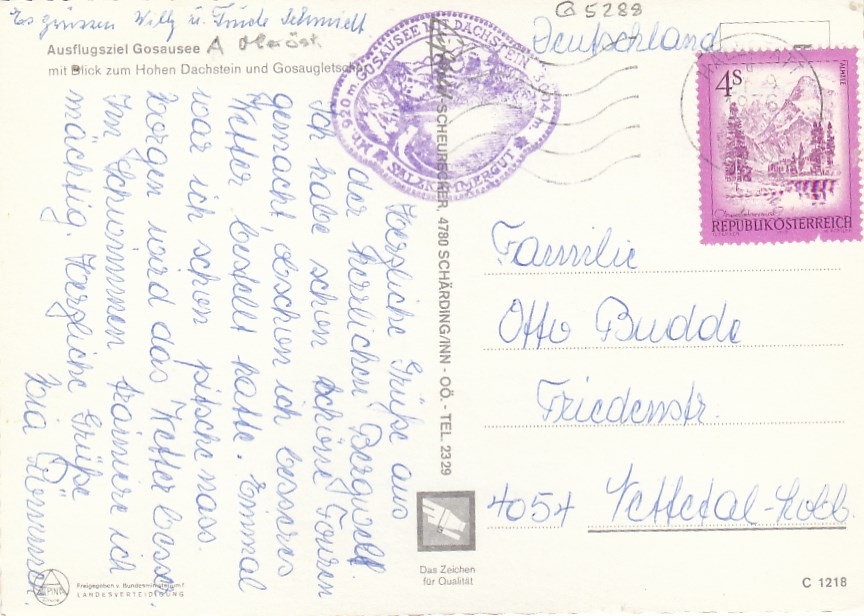 Es grüssen Willy u. Trude Schmidt
Ausflugsziel Gosausee A Oberöst.
mit Blick zum Hohen Dachstein und Gosaugletscher
G 5288
Deutschland
920 m. GOSAUSEE M. DACHSTEIN
SALZKAMMERGUT
4S
REPUBLIK ÖSTERREICH
Herzliche Grüße aus
der herrlichen Bergwelt
Ich habe schon schöne Touren
gemacht, obschon ich besseres
Wetter bestellt hatte. Einmal
war ich schon pitsche nass.
Morgen wird das Wetter besser.
Im Schwimmen trainiere ich
mächtig. Herzliche Grüße
-SCHEURECKER, 4780 SCHÄRDING/INN - OÖ. - TEL. 23 29
Familie
Otto Budde
Friedenstr.
4054 Nettetal-Lobb.
Das Zeichen
für Qualität
Freigegeben v. Bundesministerium f.
LANDESVERTEIDIGUNG
C 1218